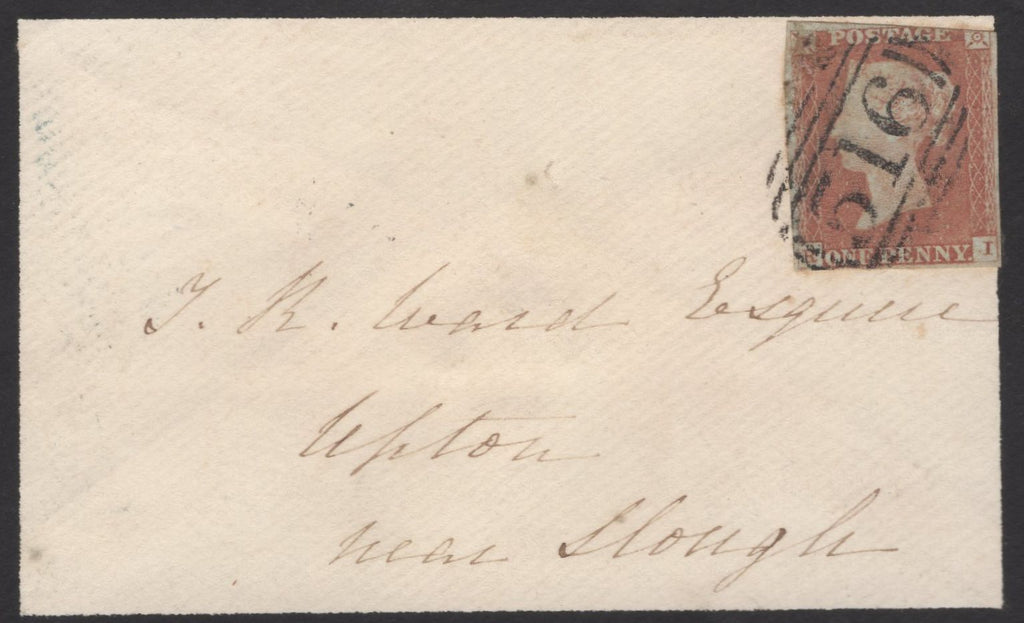 POSTAGE
516
ONE PENNY. I
T. R. Ward Esquire
Upton
near Slough